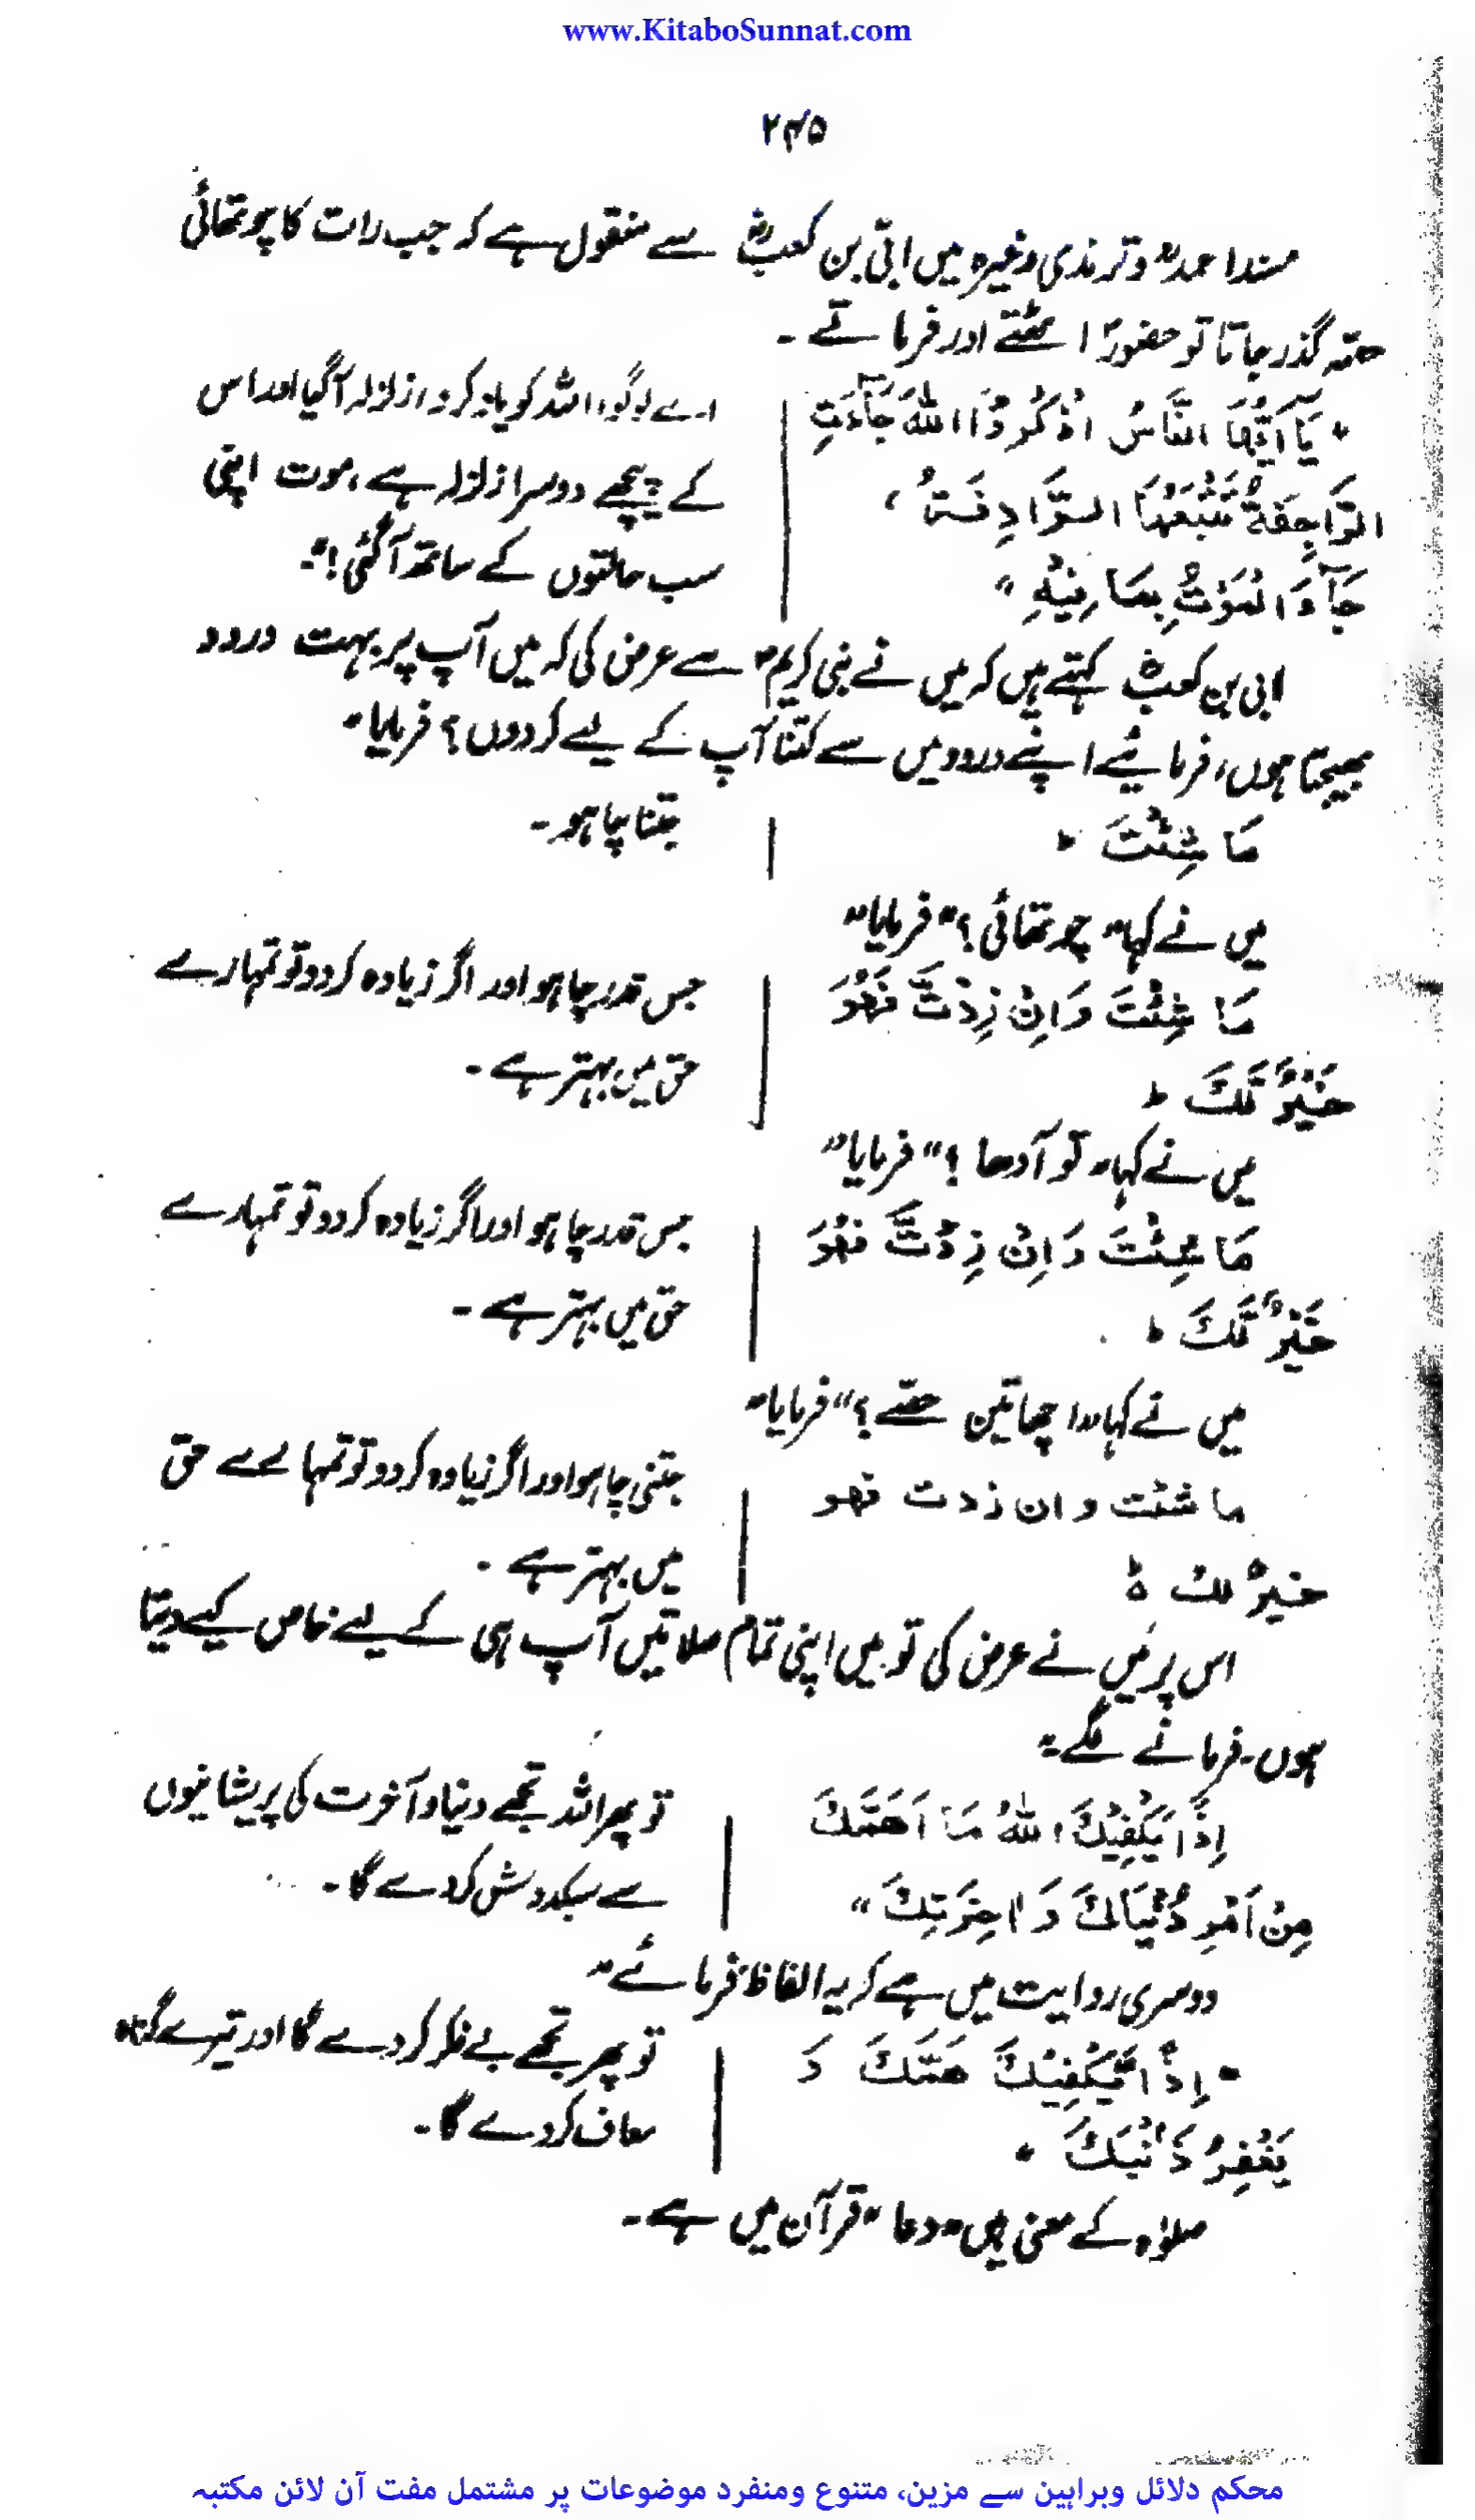 www.KitaboSunnat.com
۲۴۵
مسند احمدؒ و ترمذی وغیرہ میں ابیّ بن کعبؓ سے منقول ہے کہ جب رات کا چوتھائی
حصّہ گذر جاتا تو حضورؐ اٹھتے اور فرماتے ۔
"يَآ اَيُّهَا النَّاسُ اذْكُرُوْا اللّٰهَ جَآءَتِ
الرَّاجِفَةُ تَتْبَعُهَا الرَّادِفَةُ ،
جَآءَ الْمَوْتُ بِمَا فِيْهِ "
اے لوگو، اللہ کو یاد کرو، زلزلہ آگیا اور اس
کے پیچھے دوسرا زلزلہ ہے، موت اپنی
سب حالتوں کے ساتھ آگئی !"۔
ابی بن کعبؓ کہتے ہیں کہ میں نے نبی کریمؐ سے عرض کی کہ میں آپ پر بہت درود
بھیجتا ہوں، فرمائیے اپنے درود میں سے کتنا آپ کے لیے کردوں؟ فرمایا"
مَا شِئْتَ "
جتنا چاہو ۔
میں نے کہا" چوتھائی؟" فرمایا"
مَا شِئْتَ وَاِنْ زِدْتَّ فَهُوَ
خَيْرٌ لَّكَ "
جس قدر چاہو اور اگر زیادہ کردو تو تمہارے
حق میں بہتر ہے ۔
میں نے کہا" تو آدھا ؟" فرمایا"
مَا شِئْتَ وَاِنْ زِدْتَّ فَهُوَ
خَيْرٌ لَّكَ "
جس قدر چاہو اور اگر زیادہ کردو تو تمہارے
حق میں بہتر ہے ۔
میں نے کہا" اچھا تین حصّے ؟" فرمایا"
ما شئت و ان زدت فهو
خيرٌ لك ہ
جتنی چاہو اور اگر زیادہ کردو تو تمہارے حق
میں بہتر ہے ۔
اس پر میں نے عرض کی تو میں اپنی تمام صلاتیں آپ ہی کے لیے خاص کیے دیتا
ہوں۔ فرمانے لگے۔"
اِذًا يَكْفِيْكَ اللّٰهُ مَا اَهَمَّكَ
مِنْ اَمْرِ دُنْيَاكَ وَ اٰخِرَتِكَ "
تو پھر اللہ تجھے دنیا و آخرت کی پریشانیوں
سے سبکدوش کردے گا ۔
دوسری روایت میں ہے کہ یہ الفاظ فرمائے"
"اِذًا يَكْفِيْكَ هَمَّكَ وَ
يَغْفِرُ ذَنْبَكَ "
تو پھر تجھے بے فکر کردے گا اور تیرے گناہ
معاف کردے گا ۔
صلوٰۃ کے معنی ہیں" دعا" قرآن میں ہے ۔
محکم دلائل وبراہین سے مزین، متنوع ومنفرد موضوعات پر مشتمل مفت آن لائن مکتبہ